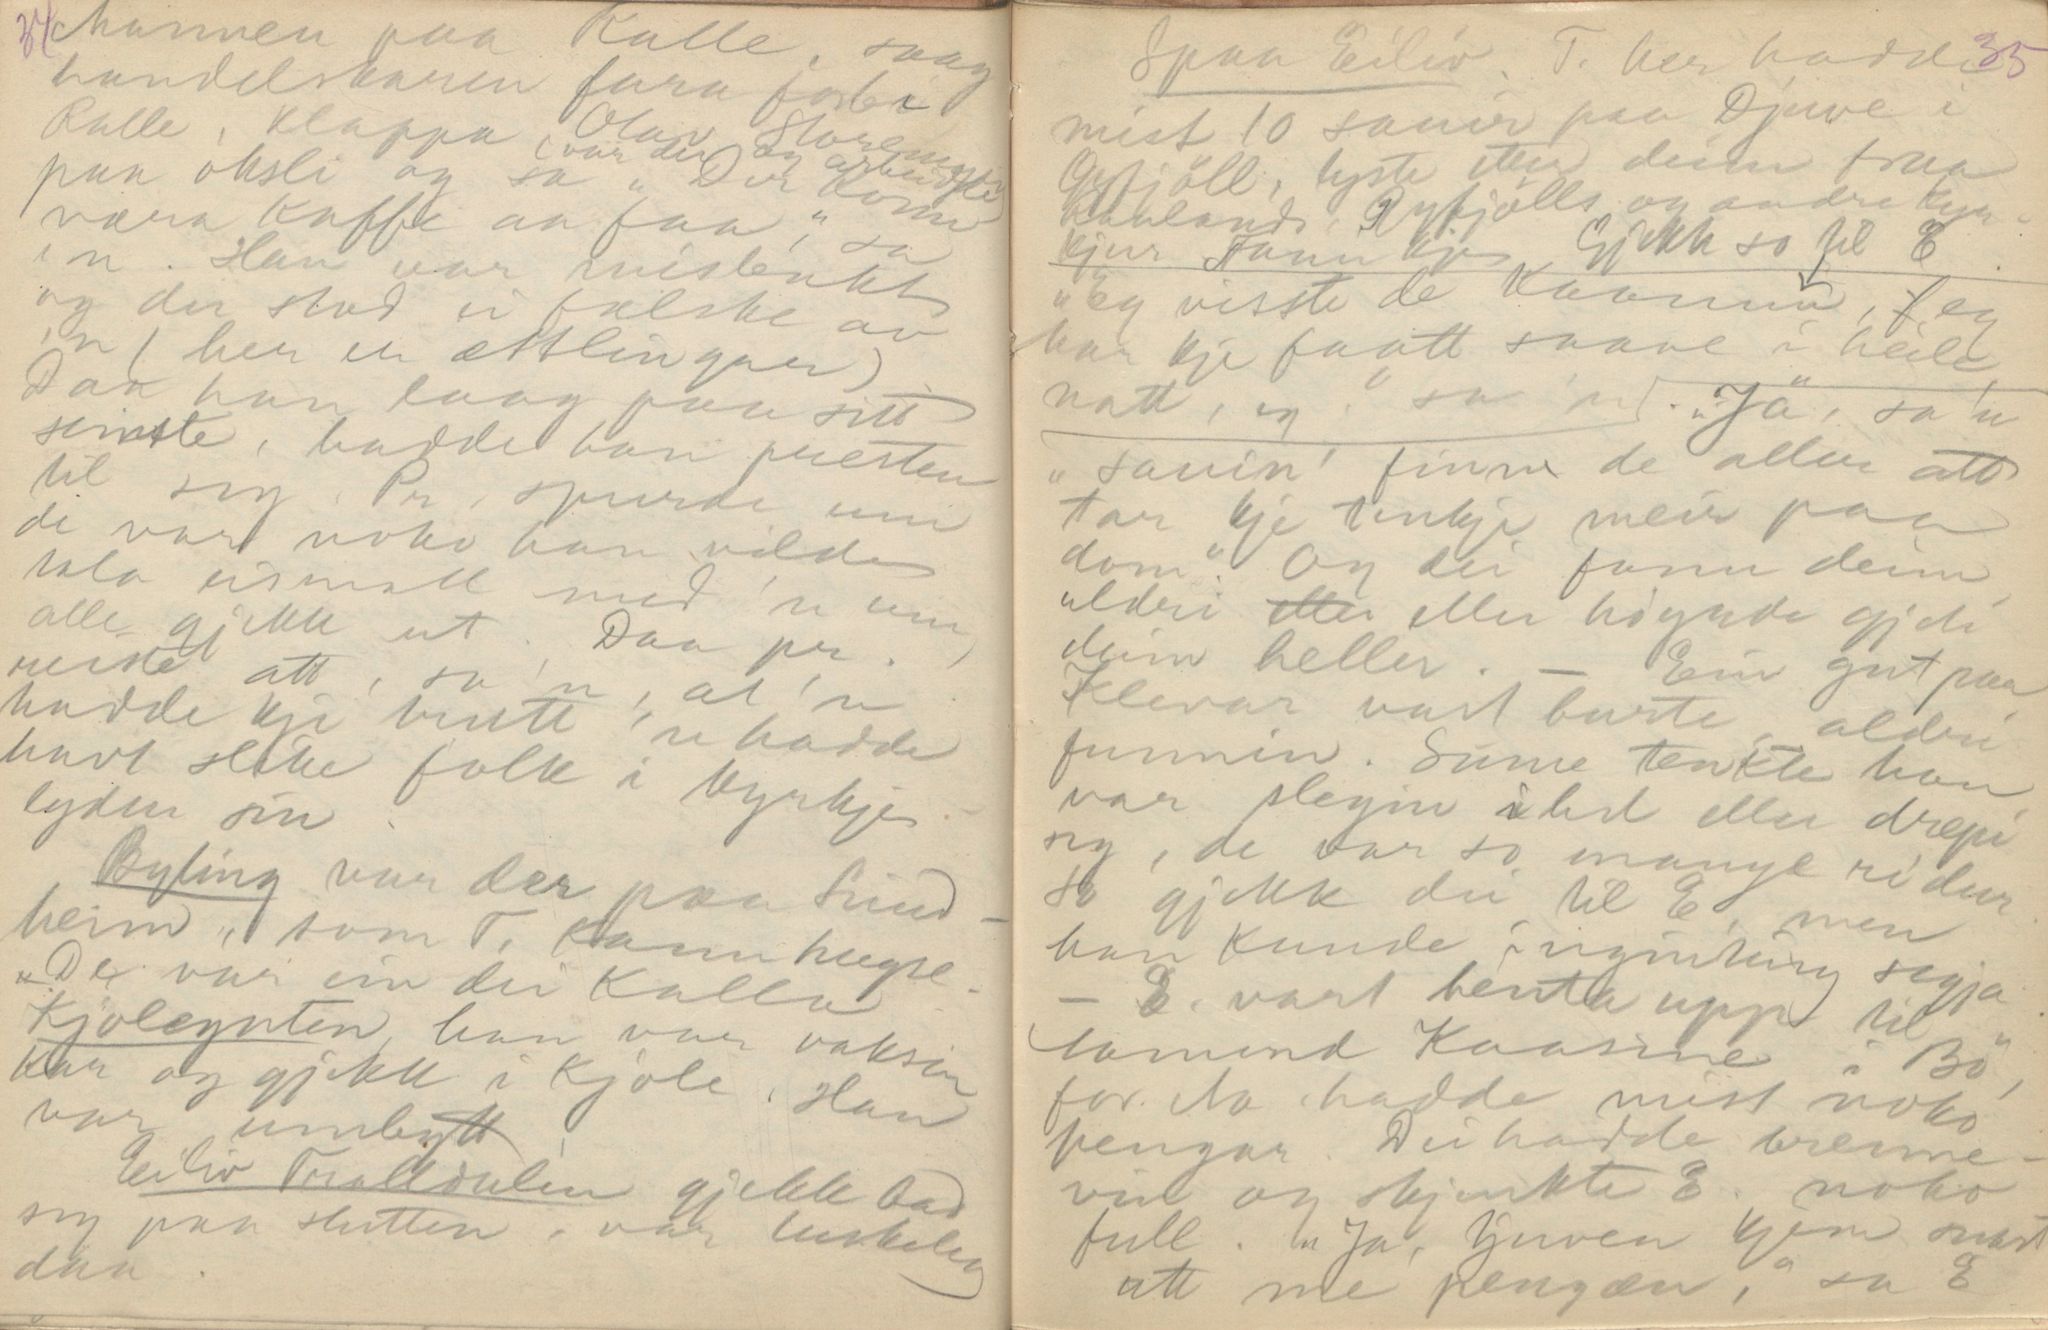 34
hannen paa Kalle, saag
handelskaren fara forbi
Kalle, klappa Olav Storemyr
(var der og arbeidde)
paa oksli og sa „Der kom
væra kaffe aa faa," sa
'n. Han var mistenkt
og der stod ei fælske av
'n (her er ættlingar)
Daa han laag paa sitt
seinste, hadde han presten
til seg. Pr. spurde um
de var noko han vilde
tala eismall med 'n um,
alle gjekk ut. Daa pr.
reiste att, sa 'n, at 'n
hadde kje trutt 'n hadde
havt slike folk i kyrkje-
lyden sin.
Byting var der paa Sund-
heim, som T. kann hugse.
„De var ein dei kalla
Kjolegnten, han var vaksin
kar og gjekk i kjole. Han
var umbytt
Eiliv Trolldalen gjekk bad
seg paa slutten, var huskeleg
daa.
35
Spaa Eiliv. T. her hadde
mist 10 sauir paa Djuve i
Øyfjöll, lyste etter deim fraa
Raulands, Øyfjölls og andre kyr-
kjur. Fann kje. Gjekk so til E
„Eg visste de Kaanna, eg
har kje faatt saave i heile
natt, eg," sa 'n. „Ja", sa 'n
„sauin' finn de aller att
tar kje tenkje meir paa
dom" Og dei fann deim
aldri eller höyrde gjeti
deim heller. – Ein gut paa
Klevar vart burte, aldri
funnin. Sume tenkte han
var slegin ihel eller drepi
seg, de var so mange ridur.
So gjekk dei til E, men
han kunde inginting segja
– E. vart henta upp til
Aamund Kaasine i Bö,
for Aa. hadde mist noko
pengar. Dei hadde brenne-
vin og skjenkte E. noko
full. „Ja, tjuven kjem snart
att me pengæn," sa E